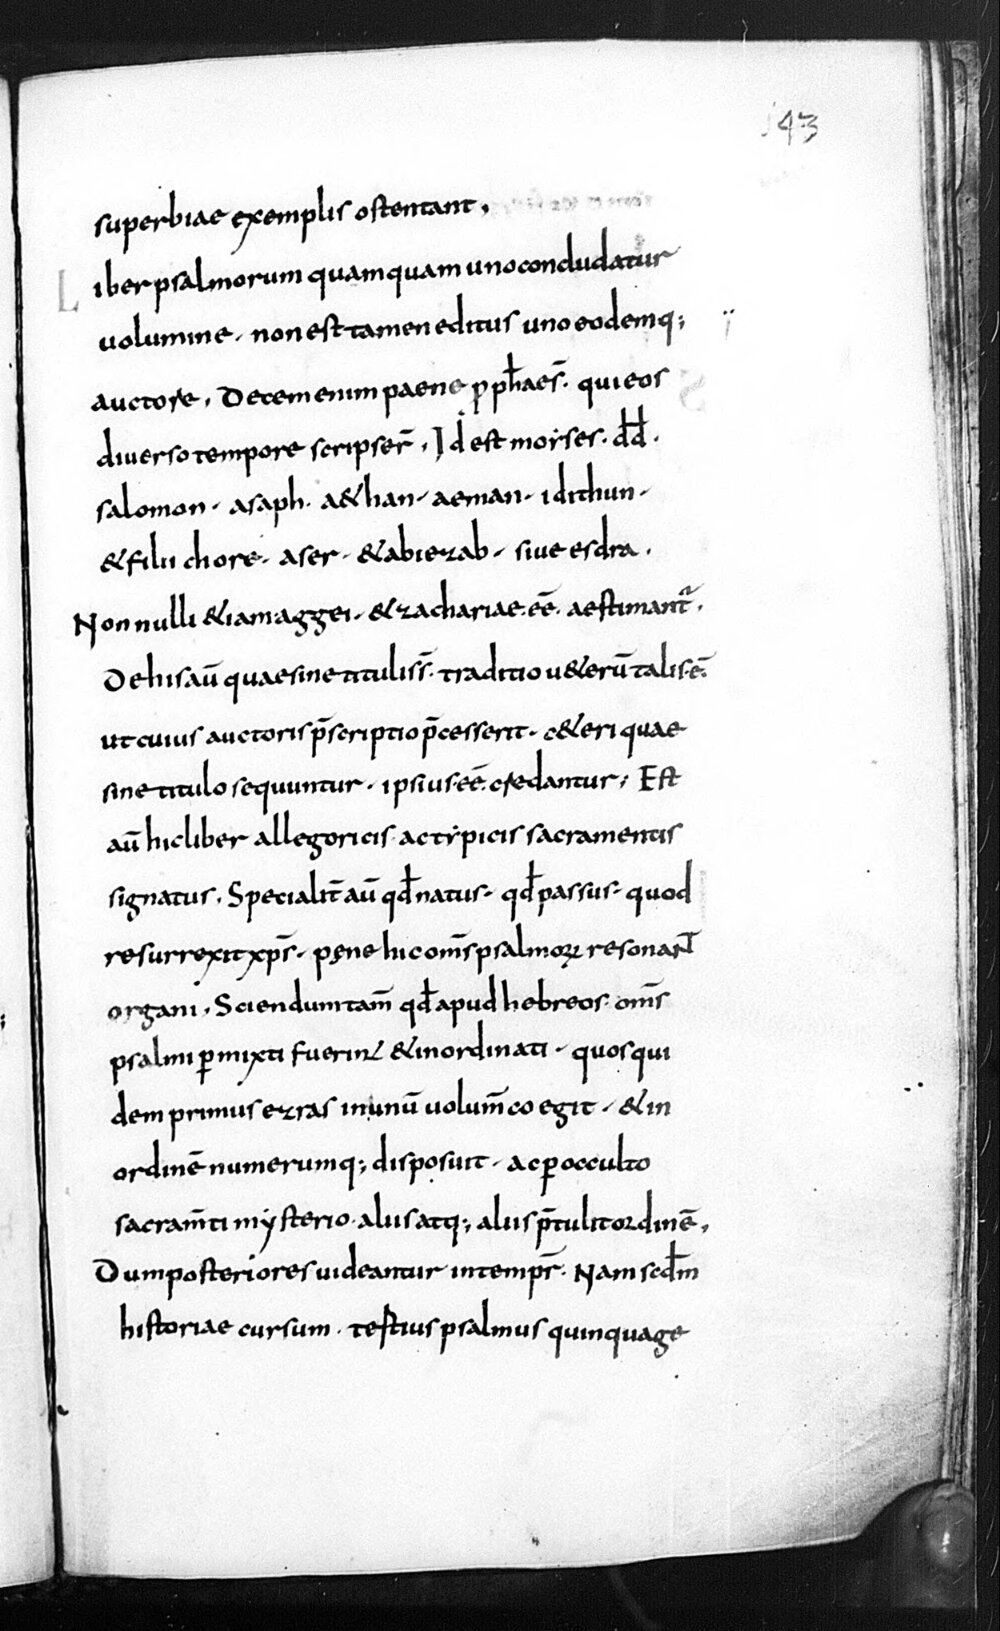 143
superbiae exemplis ostentant.
Liber psalmorum quamquam uno concludatur
uolumine. non est tamen editus uno eodemq;
auctore. Decem enim paene ꝓph̄aes̄. qui eos
diuerso tempore scripser̄. Id est moẏses. dd̄.
salomon. asaph. a&han. aeman. idithun.
& filii chore. aser. & abiezab. siue esdra.
Non nulli &iam aggei. & zachariae. eē. aestimant᷑.
De his aū quae sine titulis s̄. traditio u&erū talis. ē.
ut cuius auctoris p̄scriptio p̄cesserit. c&eri quae
sine titulo sequuntur. ipsius. eē. credantur; Est
aū hic liber allegoricis ac tẏpicis sacramentis
signatus. Specialit̄ aū qd̄ natus. qd̄ passus. quod
resurrexit xp̄s. pęne hic om̄s psalmoꝝ resonant
organi. Sciendum tam̄ qd̄ apud hebreos om̄s
psalmi ꝑmixti fuerint & inordinati. quos qui
dem primus ezras in unū uolum̄ coegit. & in
ordinē numerumq; disposuit. ac ꝑ occulto
sacram̄ti mẏsterio. alus atq; aluis p̄tulit ordinē.
Dum posteriores uideantur in temp̄s. Nam scd̄m
historiae cursum. testius psalmus quinquage